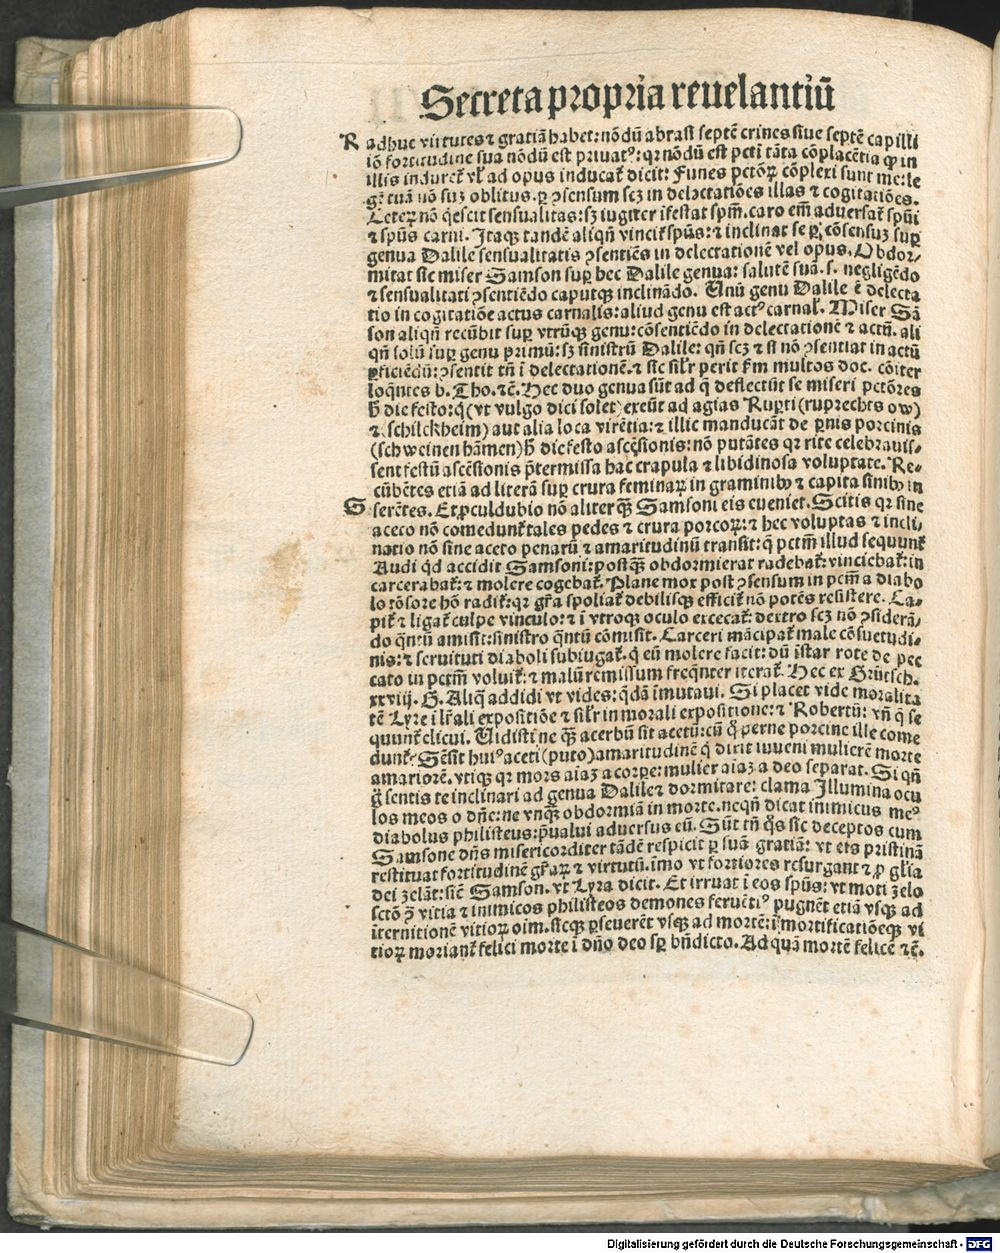 Secreta propria reuelantiū
R adhuc virtutes ⁊ gratiā habet: nōdū abrasi septē crines siue septē capilli
iō fortitudine sua nōdū est priuatꝰ: qꝛ nōdū est pcti tāta cōplacētia ꝙ in
illis induret̃ vl̕ ad opus inducat̃ dicit: Funes pctōꝝ cōplexi sunt me: le
gē tuā nō suꝫ oblitus. ꝑ ꝯsensum scꝫ in delectatiōes illas ⁊ cogitatiōes.
Ceteꝝ nō q̄escit sensualitas: sꝫ iugiter īfestat spm̄. caro em̄ aduersat̃ spūi
⁊ spūs carni. Itaqꝫ tandē aliqn̄ vincit̃ spūs: ⁊ inclinat se ꝑ cōsensuꝫ suꝑ
genua Dalile sensualitatis ꝯsentiēs in delectationē vel opus. Obdor⸗
mitat sic miser Samson suꝑ hec Dalile genua: salutē suā .s. negligēdo
⁊ sensualitati ꝯsentiēdo caputqꝫ inclinādo. Unū genu Dalile ē delecta
tio in cogitatiōe actus carnalis: aliud genu est actꝰ carnal̕. Miser Sā
son aliqn̄ recūbit suꝑ vtrūqꝫ genu: cōsentiēdo in delectationē ⁊ actū. ali
qn̄ solū suꝑ genu primū: sꝫ sinistrū Dalile: qn̄ scꝫ ⁊ si nō ꝯsentiat in actū
ꝑficiēdū: ꝯsentit tn̄ ī delectationē. ⁊ sic sil̕r perit ẜm multos doc. cōiter
loq̄ntes b. Tho. ⁊c̄. Hec duo genua sūt ad q̄ deflectūt se miseri pctōres
h̄ die festo: q̄ (vt vulgo dici solet) exeūt ad agias Ruꝑti (ruprechts ow)
⁊ (schilckheim) aut alia loca virētia: ⁊ illic manducāt de ꝑnis porcinis
(schweinen hāmen) h̄ die festo ascēsionis: nō putātes qꝛ rite celebrauis⸗
sent festū ascēsionis p̄termissa hac crapula ⁊ libidinosa voluptate. Re⸗
cūbētes etiā ad literā suꝑ crura feminaꝝ in graminibꝰ ⁊ capita sinibꝰ in
S serētes. Et ꝓculdubio nō aliter qꝫ̄ Samsoni eis eueniet. Scitis qꝛ sine
aceto nō comedunt̃ tales pedes ⁊ crura porcoꝝ: ⁊ hec voluptas ⁊ incli⸗
natio nō sine aceto penarū ⁊ amaritudinū transit: q̄ pctm̄ illud sequunt̃
Audi qd̓ accidit Samsoni: postqꝫ̄ obdormierat radebat̃: vinciebat̃: in
carcerabat̃: ⁊ molere cogebat̃. Plane mox post ꝯsensum in pctm̄ a diabo
lo tōsore hō radit̃: qꝛ gr̄a spoliat̃ debilisqꝫ efficit̃ nō potēs resistere. Ca⸗
pit̃ ⁊ ligat̃ culpe vinculo: ⁊ ī vtroqꝫ oculo excecat̃: dextro scꝫ nō ꝯsiderā⸗
do q̄ntū amisit: sinistro q̄ntū cōmisit. Carceri mācipat̃ male cōsuetudi⸗
nis: ⁊ seruituti diaboli subiugat̃. q̄ eū molere facit: dū īstar rote de pec
cato in pctm̄ voluit̃: ⁊ malū remissum freq̄nter iterat̃. Hec ex Grütsch.
xxviij. G. Aliq̄ addidi vt vides: q̄dā īmutaui. Si placet vide moralita
tē Lyre ī lr̄ali expositiōe ⁊ sil̕r in morali expositione: ⁊ Robertū: vn̄ q̄ se
quunt̃ elicui. Vidisti ne qꝫ̄ acerbū sit acetū: cū q̊ perne porcine ille come
dunt̃? Sēsit huiꝰ aceti (puto) amaritudinē q̄ dixit inueni mulierē morte
amariorē. vtiqꝫ qꝛ mors aiaꝫ a corpe: mulier aiaꝫ a deo separat. Si qn̄
g̊ sentis te inclinari ad genua Dalile ⁊ dormitare: clama Illumina ocu
los meos o dn̄e: ne vnqꝫ̄ obdormiā in morte. neqn̄ dicat inimicus meꝰ
diabolus philisteus: p̄ualui aduersus eū. Sūt tn̄ q̊s sic deceptos cum
Samsone dn̄s misericorditer tādē respicit ꝑ suā gratiā: vt eis pristinā
restituat fortitudinē gr̄aꝝ ⁊ virtutū. īmo vt fortiores resurgant ⁊ ꝓ gl̕ia
dei zelāt: sicē Samson. vt Lyra dicit. Et irruat ī eos spūs: vt moti zelo
sctō ꝯ̄ vitia ⁊ inimicos philisteos demones feruētiꝰ pugnēt etiā vsqꝫ ad
īternitionē vitioꝝ oīm. sicqꝫ ꝑseuerēt vsqꝫ ad mortē: ī mortificatiōeqꝫ vi
tioꝝ moriant̃ felici morte ī dn̄o deo sꝑ bn̄dicto. Ad quā mortē felicē ⁊c̄.
Digitalisierung gefördert durch die Deutsche Forschungsgemeinschaft - DFG